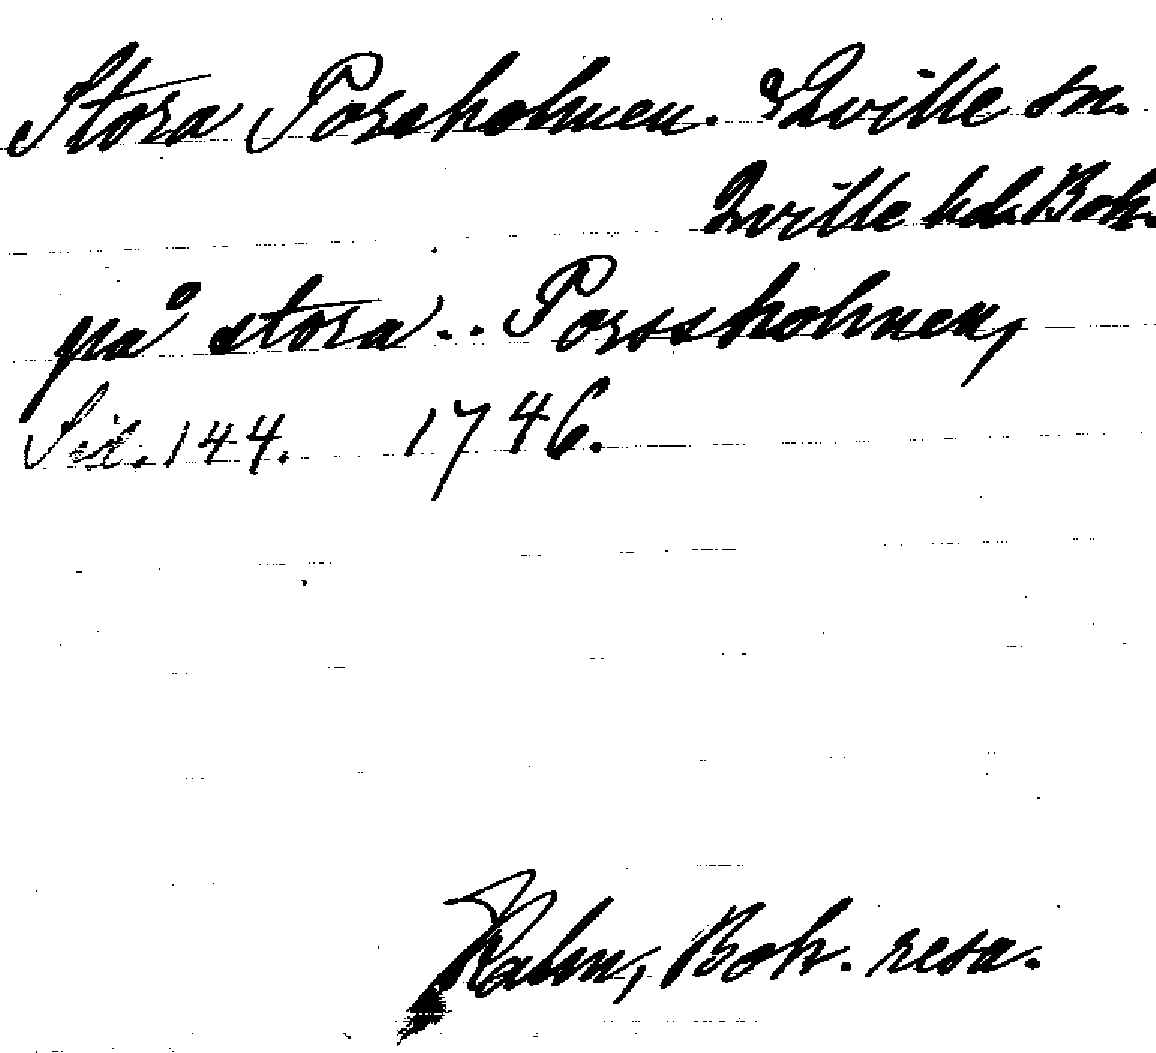 Stora Porsholmen. Qville sn.
Qville hd. Boh.
på stora .. Porssholmen,
Sid. 144. 1746.
Kalm, Boh. resa.